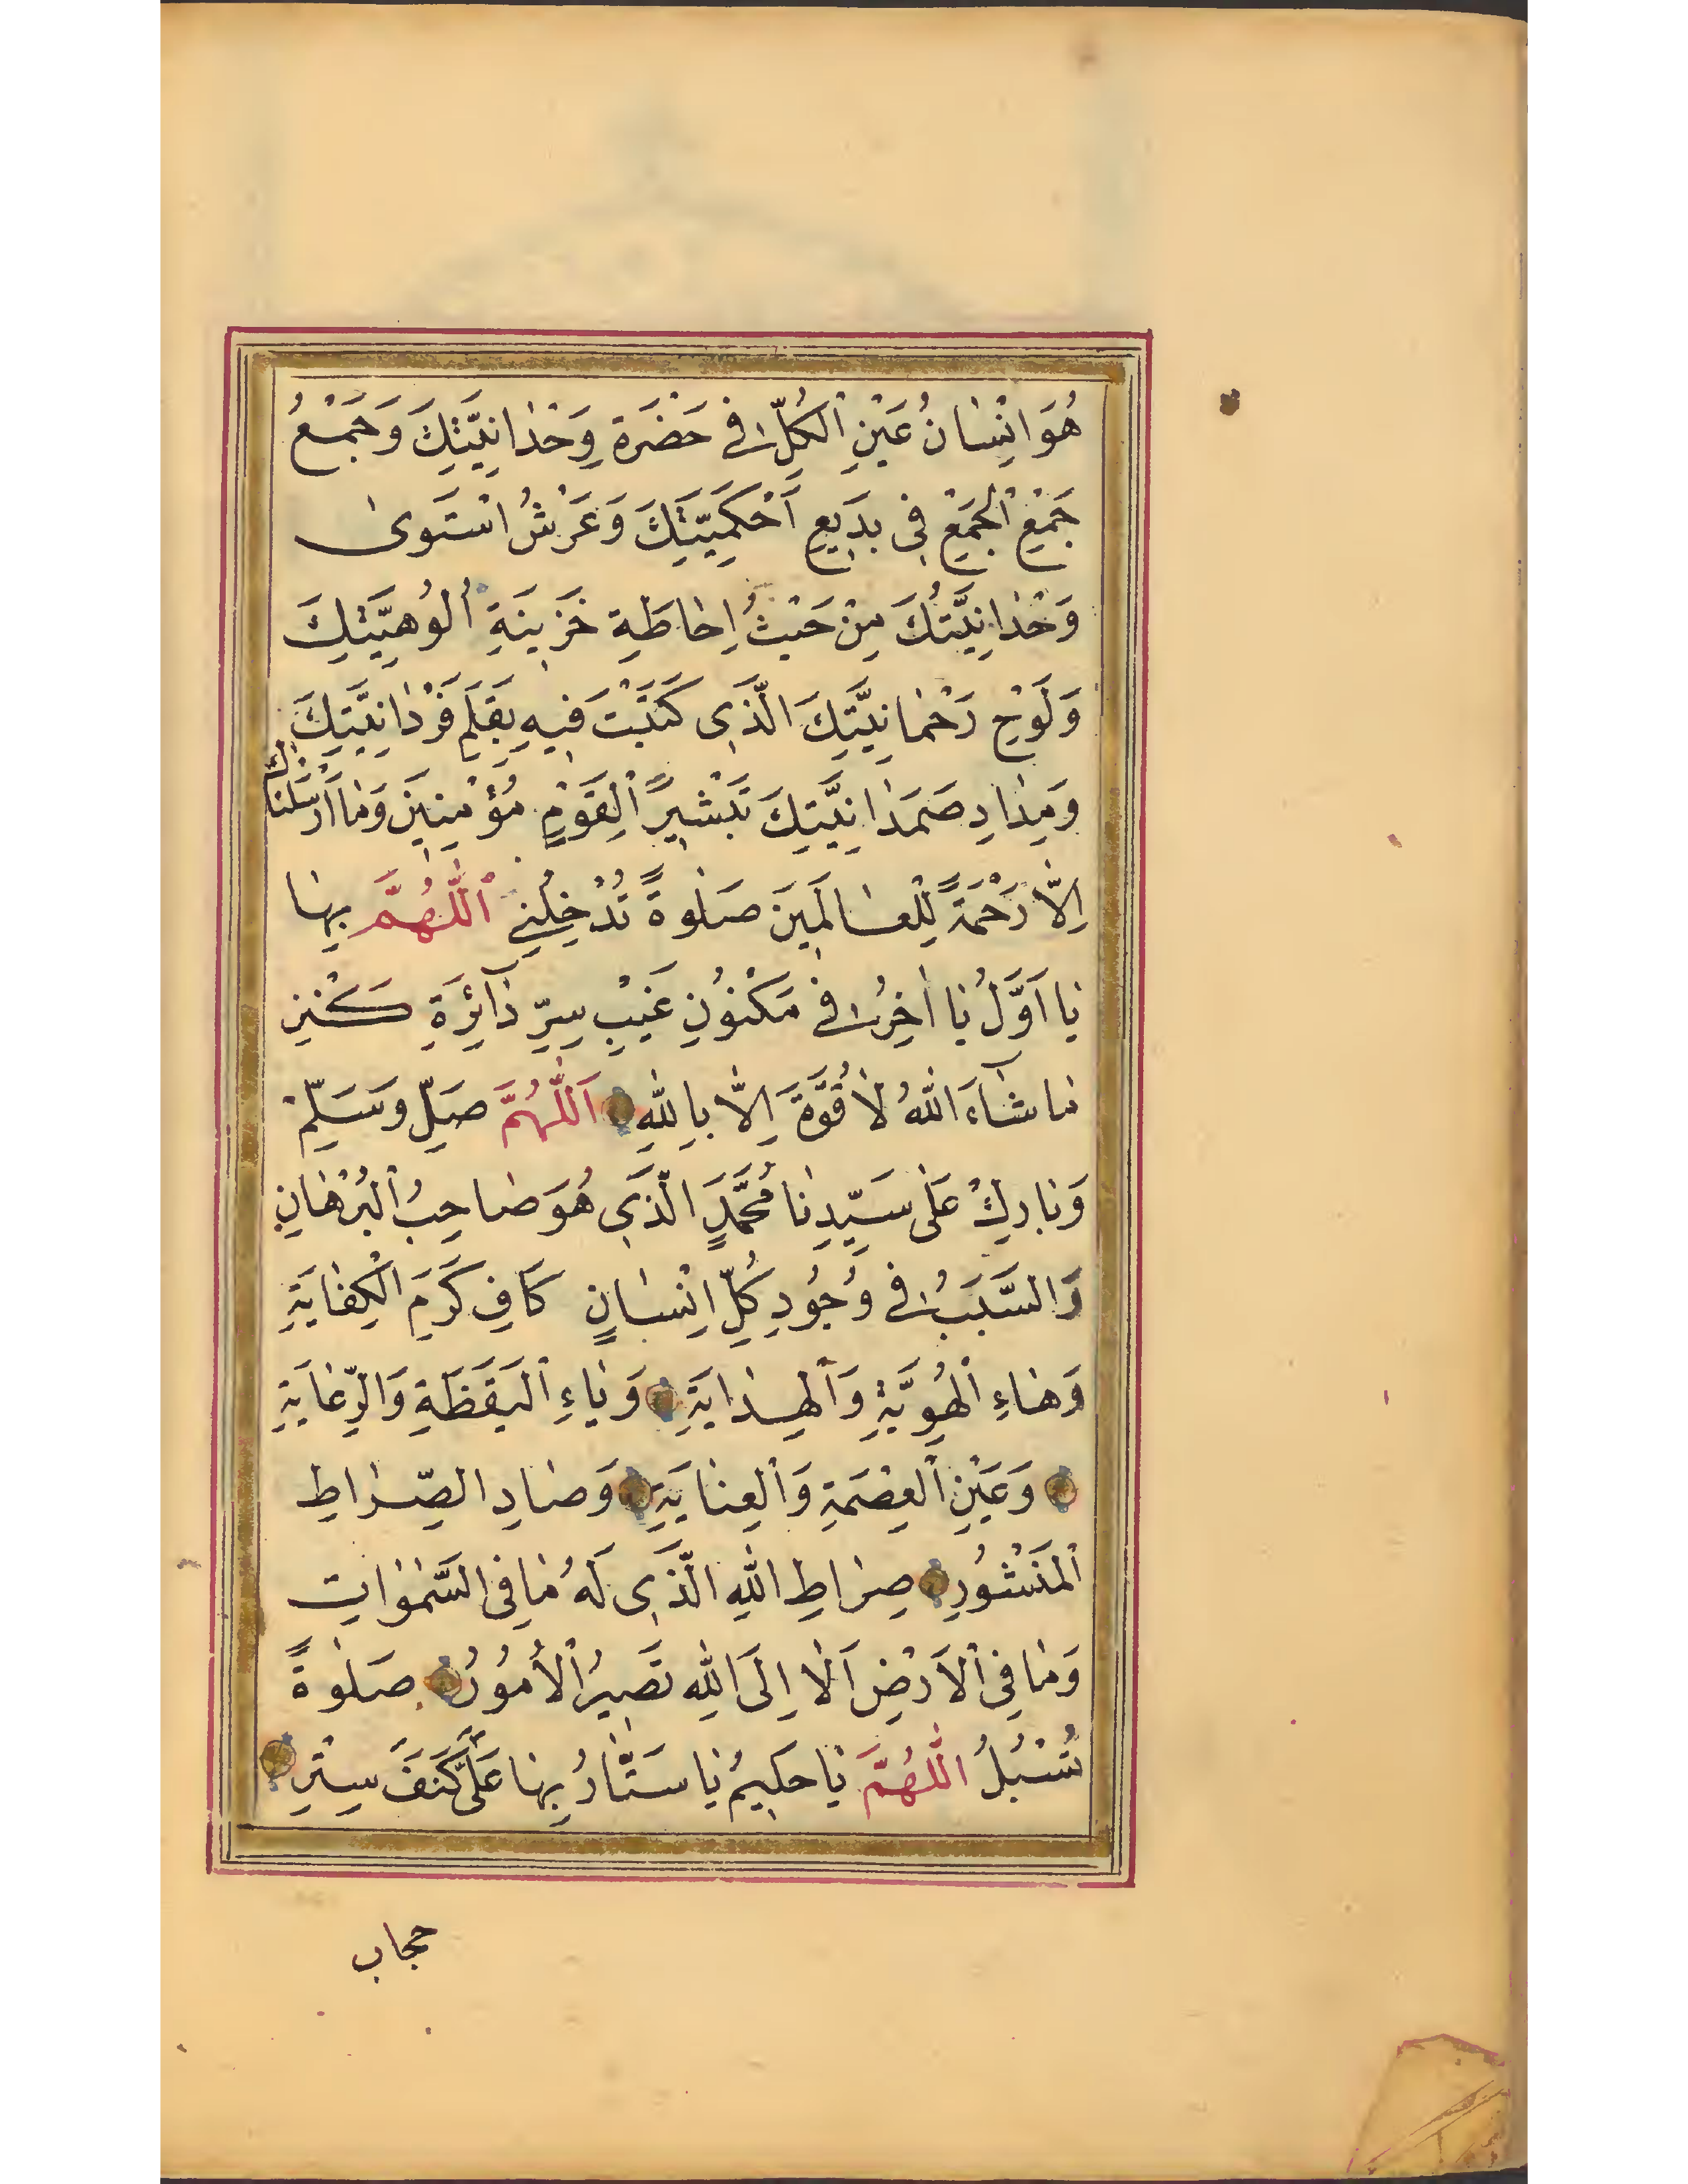 هُوَ اِنْسَانُ عَيْنِ الْكُلِّ فِي حَضْرَةِ وَحْدَانِيَّتِكَ وَجَمْعُ
جَمْعِ الْجَمْعِ فِي بَدِيعِ اَحْكَمِيَّتِكَ وَعَرْشُ اسْتَوٰى
وَحْدَانِيَّتُكَ مِنْ حَيْثُ اِحَاطَةِ خَزِينَةِ اُلُوهِيَّتِكَ
وَلَوْحِ رَحْمَانِيَّتِكَ الَّذِي كَتَبْتَ فِيهِ بِقَلَمِ فَرْدَانِيَّتِكَ
وَمِدَادِ صَمَدَانِيَّتِكَ تَبْشِيرًا لِقَوْمٍ مُؤْمِنِينَ وَمَا اَرْسَلْنَاكَ
اِلَّا رَحْمَةً لِلْعَالَمِينَ صَلٰوةً تُدْخِلُنِي اَللّٰهُمَّ بِهَا
يَا اَوَّلُ يَا اٰخِرُ فِي مَكْنُونِ غَيْبِ سِرِّ دَآئِرَةِ كَنْزِ
مَا شَآءَ اللّٰهُ لَا قُوَّةَ اِلَّا بِاللّٰهِ اَللّٰهُمَّ صَلِّ وَسَلِّمْ
وَبَارِكْ عَلَى سَيِّدِنَا مُحَمَّدٍ الَّذِي هُوَ صَاحِبُ الْبُرْهَانِ
وَالسَّبَبُ فِي وُجُودِ كُلِّ اِنْسَانٍ كَافِ كَرَمِ الْكِفَايَةِ
وَهَاءِ الْهُوِيَّةِ وَالْهِدَايَةِ وَيَاءِ الْيَقَظَةِ وَالرِّعَايَةِ
وَعَيْنِ الْعِصْمَةِ وَالْعِنَايَةِ وَصَادِ الصِّرَاطِ
الْمَنْشُورِ صِرَاطِ اللّٰهِ الَّذِي لَهُ مَا فِي السَّمٰوَاتِ
وَمَا فِي الْاَرْضِ اَلَا اِلَى اللّٰهِ تَصِيرُ الْاُمُورُ صَلٰوةً
تُسْبِلُ اَللّٰهُمَّ يَا حَكِيمُ يَا سَتَّارُ بِهَا عَلَيَّ كَنَفَ سِتْرِ
حجاب